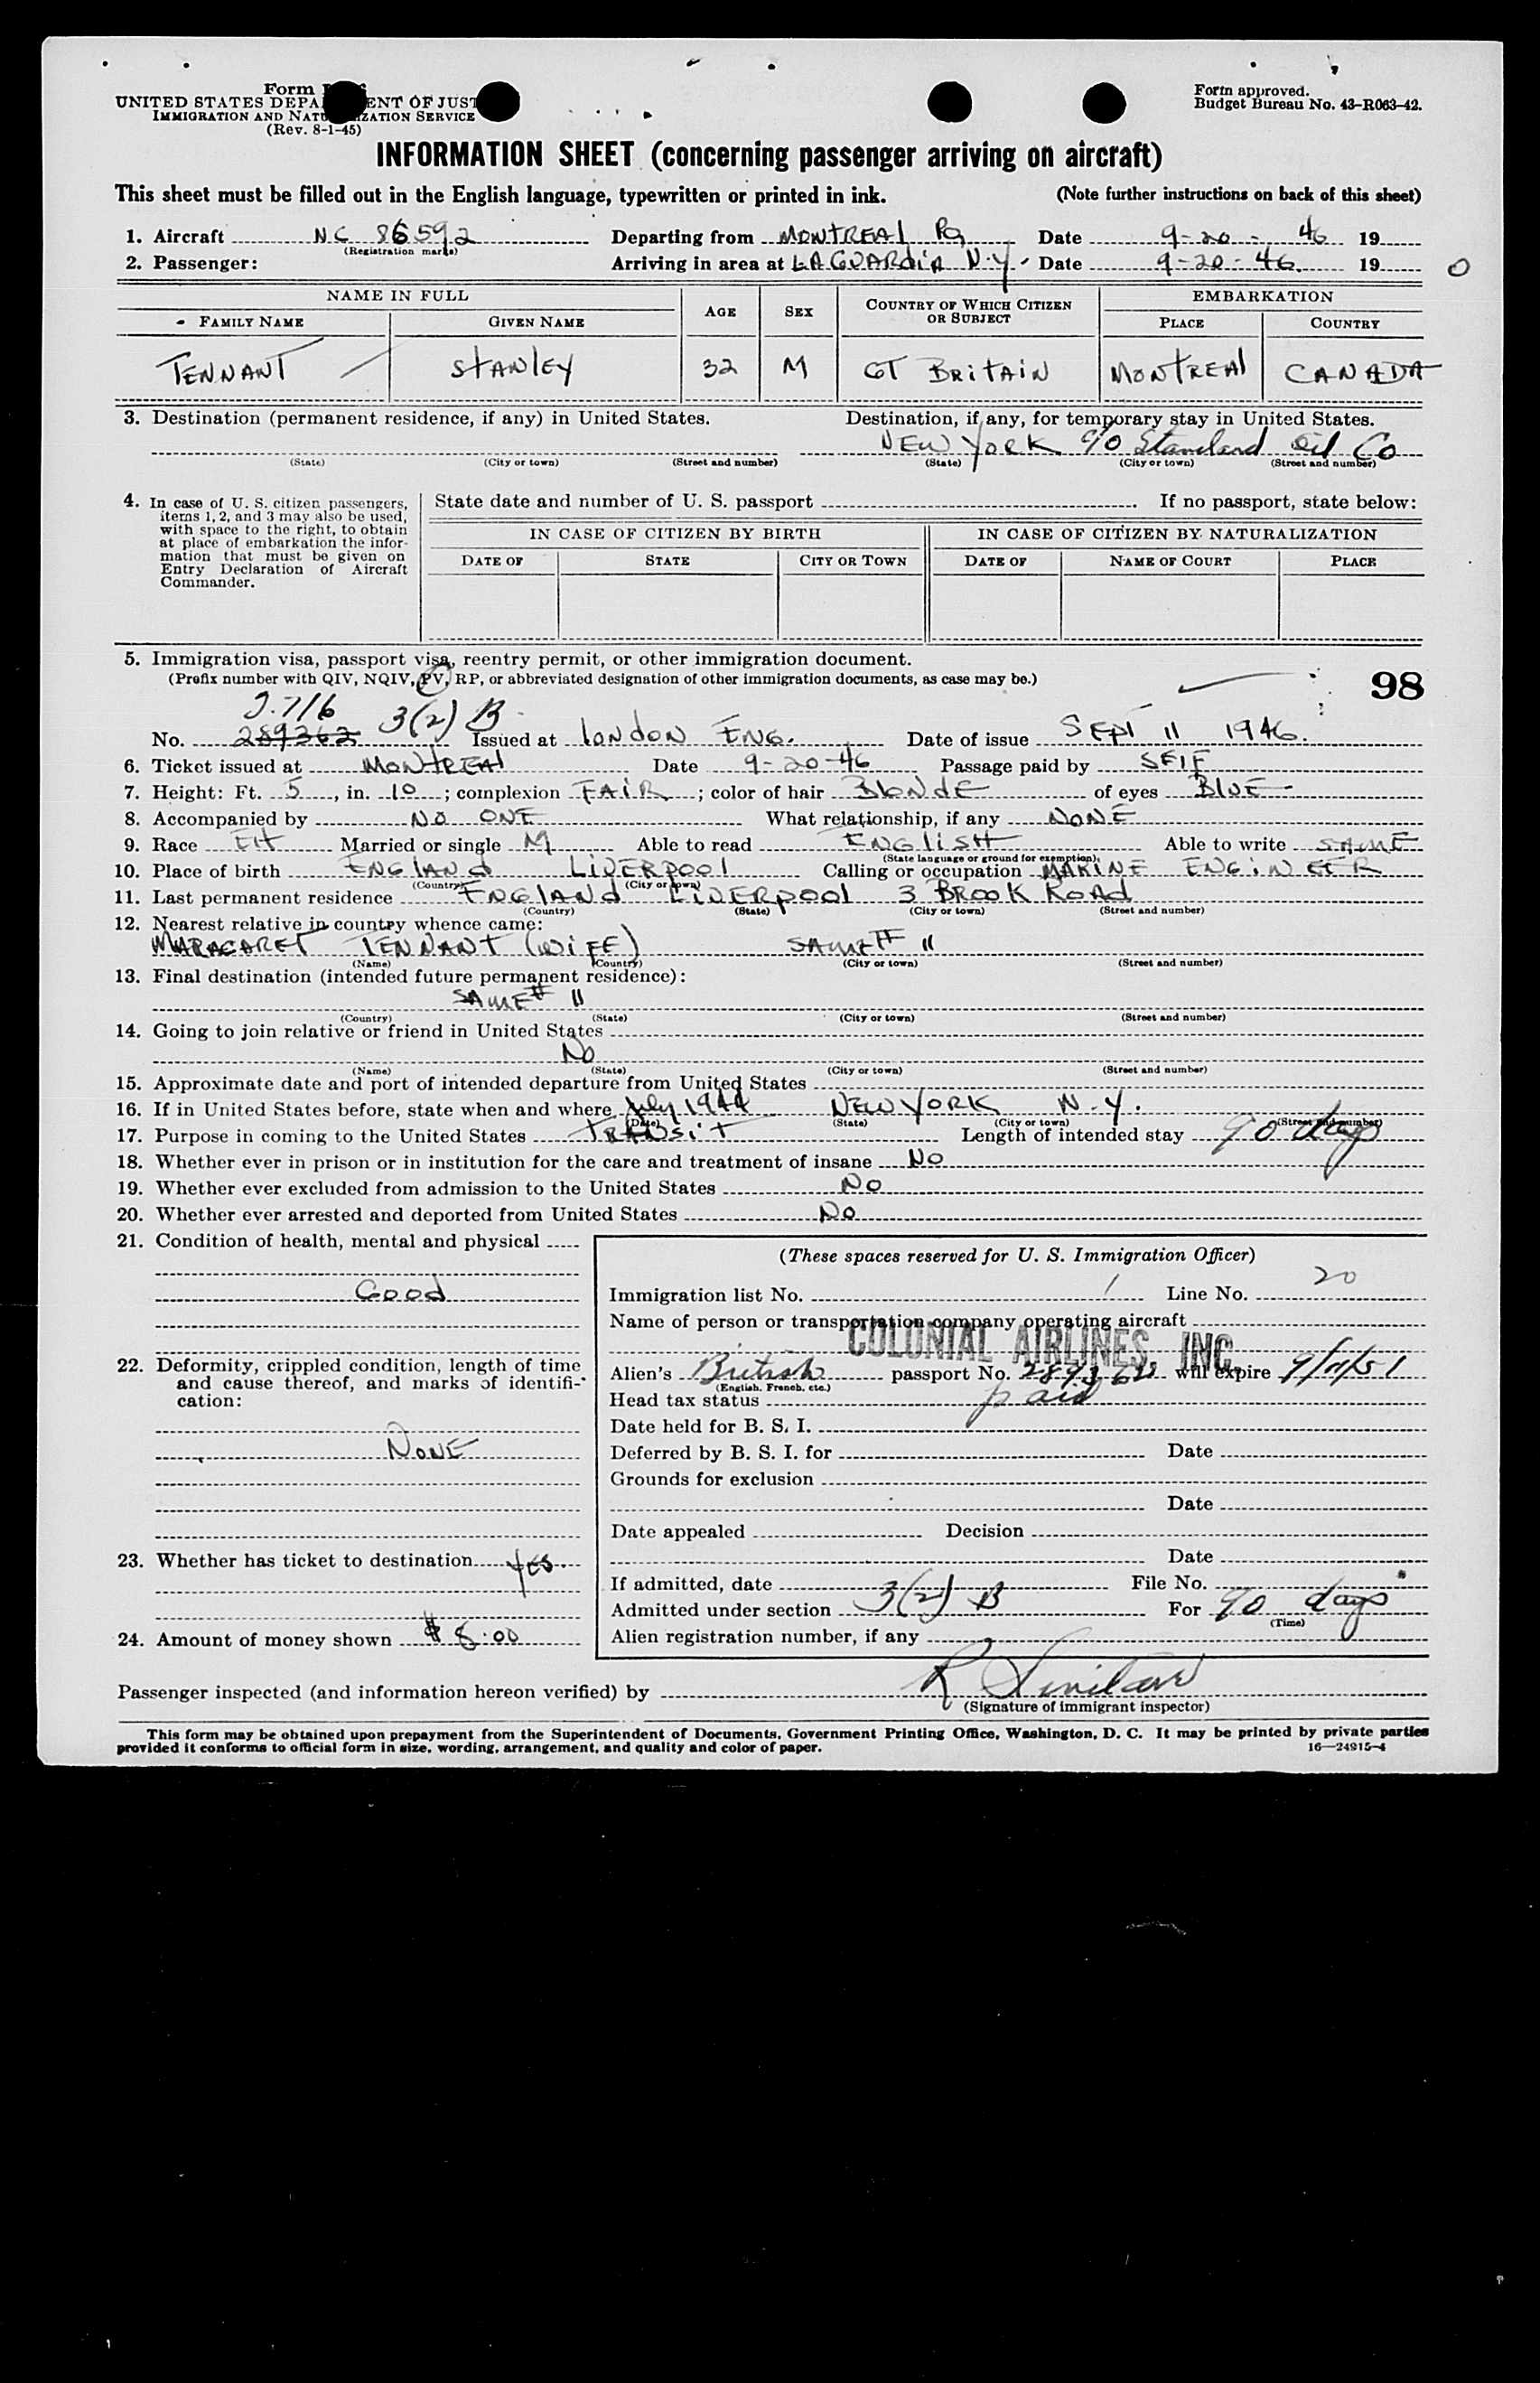 Form
UNITED STATES DEPA ENT OF JUST
IMMIGRATION AND NATU ZATION SERVICE
(Rev. 8-1-45)
Form approved.
Budget Bureau No. 43-R063-42.
INFORMATION SHEET (concerning passenger arriving on aircraft)
This sheet must be filled out in the English language, typewritten or printed in ink. (Note further instructions on back of this sheet)
1. Aircraft NC 86592 Departing from MONTREAL PQ Date 9-20-46 19
(Registration marks)
2. Passenger: Arriving in area at LAGUARDIA N.Y. Date 9-20-46 19 0
NAME IN FULL AGE SEX COUNTRY OF WHICH CITIZEN OR SUBJECT EMBARKATION
FAMILY NAME GIVEN NAME PLACE COUNTRY
TENNANT STANLEY 32 M GT BRITAIN MONTREAL CANADA
3. Destination (permanent residence, if any) in United States. Destination, if any, for temporary stay in United States.
NEW YORK c/o Standard Oil Co
(State) (City or town) (Street and number) (State) (City or town) (Street and number)
4. In case of U. S. citizen passengers, items 1, 2, and 3 may also be used, with space to the right, to obtain at place of embarkation the information that must be given on Entry Declaration of Aircraft Commander.
State date and number of U. S. passport If no passport, state below:
IN CASE OF CITIZEN BY BIRTH IN CASE OF CITIZEN BY NATURALIZATION
DATE OF STATE CITY OR TOWN DATE OF NAME OF COURT PLACE
5. Immigration visa, passport visa, reentry permit, or other immigration document.
(Prefix number with QIV, NQIV, PV, RP, or abbreviated designation of other immigration documents, as case may be.) 98
3(2) B
No. 289362 Issued at LONDON ENG. Date of issue SEPT 11 1946.
6. Ticket issued at MONTREAL Date 9-20-46 Passage paid by SELF
7. Height: Ft. 5, in. 10; complexion FAIR; color of hair BLONDE of eyes BLUE
8. Accompanied by NO ONE What relationship, if any NONE
9. Race Married or single M Able to read ENGLISH Able to write SAME
(State language or ground for exemption)
10. Place of birth ENGLAND LIVERPOOL Calling or occupation MARINE ENGINEER
(Country) (City or town)
11. Last permanent residence ENGLAND LIVERPOOL 3 BROOK ROAD
(Country) (State) (City or town) (Street and number)
12. Nearest relative in country whence came:
MARAGARET TENNANT (WIFE) SAME # 11
(Name) (Country) (City or town) (Street and number)
13. Final destination (intended future permanent residence):
SAME # 11
(Country) (State) (City or town) (Street and number)
14. Going to join relative or friend in United States
No
(Name) (State) (City or town) (Street and number)
15. Approximate date and port of intended departure from United States
16. If in United States before, state when and where July 1944 NEW YORK N.Y.
(Date) (State) (City or town) (Street and number)
17. Purpose in coming to the United States TRANSIT Length of intended stay 90 days
18. Whether ever in prison or in institution for the care and treatment of insane No
19. Whether ever excluded from admission to the United States No
20. Whether ever arrested and deported from United States No
21. Condition of health, mental and physical
Good
22. Deformity, crippled condition, length of time and cause thereof, and marks of identification:
NONE
23. Whether has ticket to destination Yes.
24. Amount of money shown $ 8.00
(These spaces reserved for U. S. Immigration Officer)
Immigration list No. 1 Line No. 20
Name of person or transportation company operating aircraft
COLONIAL AIRLINES, INC.
Alien's British passport No. 289362 will expire 9/11/51
(English, French, etc.)
Head tax status paid
Date held for B. S. I.
Deferred by B. S. I. for Date
Grounds for exclusion
Date
Date appealed Decision
Date
If admitted, date File No.
Admitted under section 3(2) B For 90 days
(Time)
Alien registration number, if any
Passenger inspected (and information hereon verified) by
(Signature of immigrant inspector)
This form may be obtained upon prepayment from the Superintendent of Documents, Government Printing Office, Washington, D. C. It may be printed by private parties
provided it conforms to official form in size, wording, arrangement, and quality and color of paper. 16—24915-4